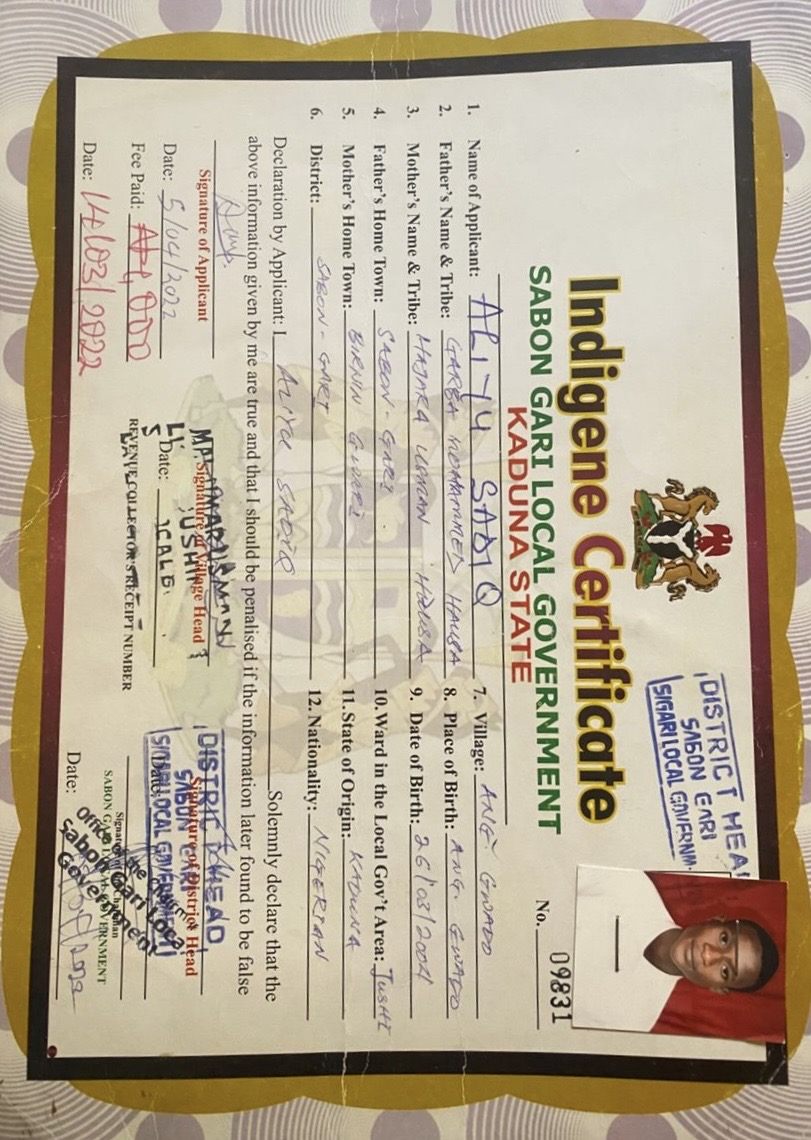 Indigene Certificate
SABON GARI LOCAL GOVERNMENT
KADUNA STATE
DISTRICT HEAD
SABON GARI
S/GARI LOCAL GOVERNM
No. 09831
1. Name of Applicant: ALIYU SADIQ
2. Father's Name & Tribe: GARBA MOHAMMED HAUSA
3. Mother's Name & Tribe: HAJARA USMAN HAUSA
4. Father's Home Town: SABON-GARI
5. Mother's Home Town: BIRNIN GWARI
6. District: SABON-GARI
7. Village: ANG GWADO
8. Place of Birth: ANG. GWADO
9. Date of Birth: 26/03/2004
10. Ward in the Local Gov't Area: JUSHI
11. State of Origin: KADUNA
12. Nationality: NIGERIAN
Declaration by Applicant: I ALIYU SADIQ Solemnly declare that the
above information given by me are true and that I should be penalised if the information later found to be false
Signature of Applicant
Date: 5/04/2022
Fee Paid: 
Date: 14/03/2022
Signature of Village Head
Date:
REVENUE COLLECTOR'S RECEIPT NUMBER
DISTRICT HEAD
SABON GARI
S/GARI LOCAL GOVERNMENT
Signature of District Head
Date:
SABON GARI LOCAL GOVERNMENT
Office of the Chairman
Sabon Gari Local
Government
Date: